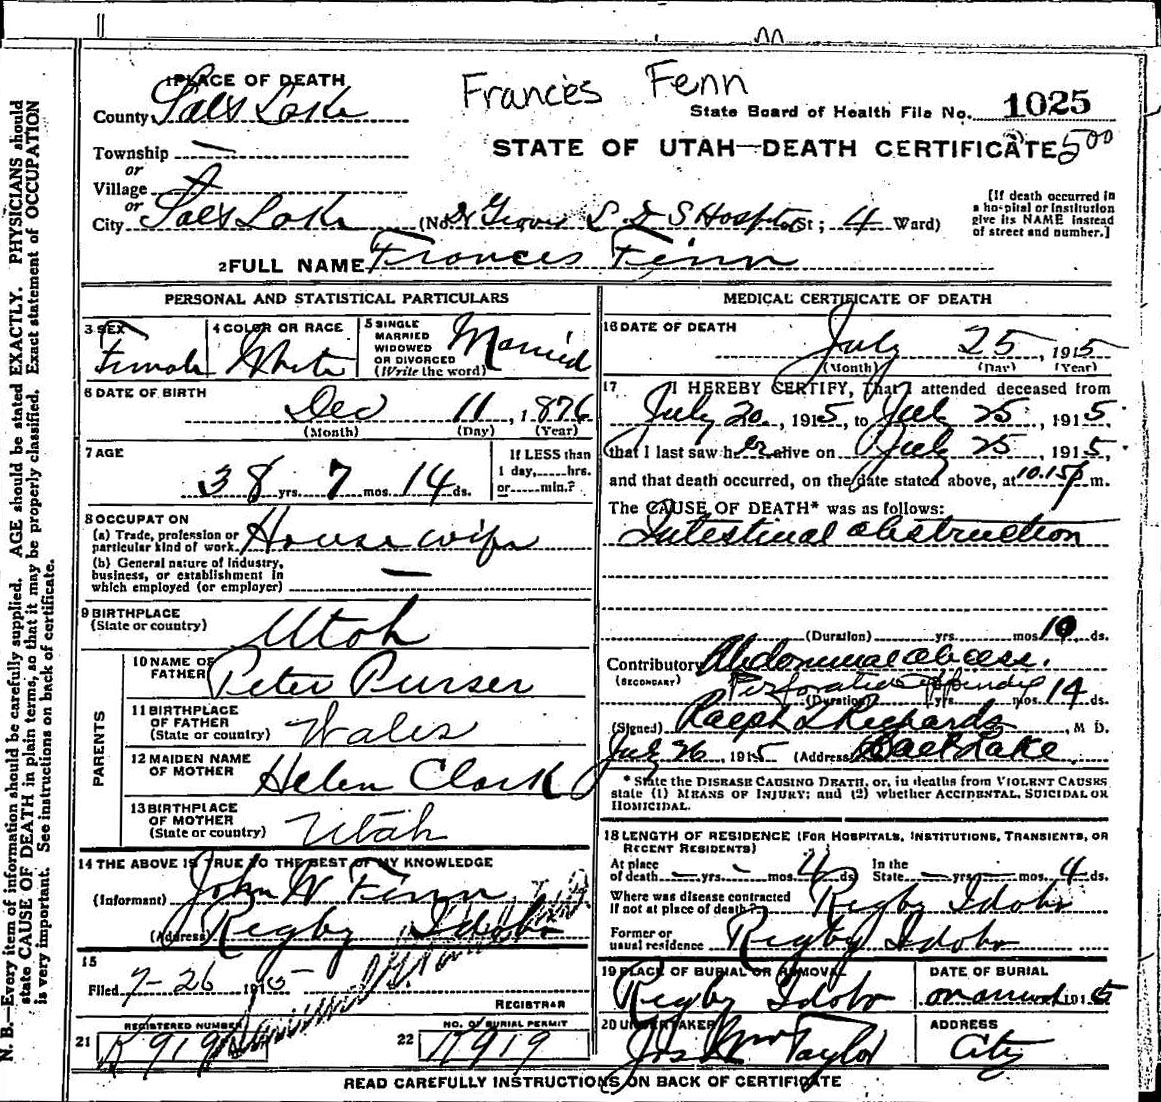 Frances Fenn
1 PLACE OF DEATH
County Salt Lake
State Board of Health File No. 1025
Township —
STATE OF UTAH—DEATH CERTIFICATE
500
or
Village
or
City Salt Lake (No. Groves L. D S Hospital St; 4 Ward)
[If death occurred in
a hospital or institution
give its NAME instead
of street and number.]
2 FULL NAME Frances Fenn
PERSONAL AND STATISTICAL PARTICULARS
3 SEX Female
4 COLOR OR RACE White
5 SINGLE
MARRIED
WIDOWED
OR DIVORCED
(Write the word)
Married
6 DATE OF BIRTH
Dec 11, 1876
(Month) (Day) (Year)
7 AGE
38 yrs. 7 mos. 14 ds.
If LESS than
1 day,......hrs.
or......min.?
8 OCCUPATION
(a) Trade, profession or
particular kind of work. House wife
(b) General nature of Industry,
business, or establishment in
which employed (or employer) —
9 BIRTHPLACE
(State or country) Utah
PARENTS
10 NAME OF
FATHER Peter Purser
11 BIRTHPLACE
OF FATHER
(State or country) Wales
12 MAIDEN NAME
OF MOTHER Helen Clark
13 BIRTHPLACE
OF MOTHER
(State or country) Utah
14 THE ABOVE IS TRUE TO THE BEST OF MY KNOWLEDGE
(Informant) John W Fenn
(Address) Rigby Idaho
15
Filed 7-26 1915
REGISTRAR
21 REGISTERED NUMBER
K919
22 NO. OF BURIAL PERMIT
K919
MEDICAL CERTIFICATE OF DEATH
16 DATE OF DEATH
July 25, 1915
(Month) (Day) (Year)
17 I HEREBY CERTIFY, That I attended deceased from
July 20, 1915, to July 25, 1915,
that I last saw her alive on July 25, 1915,
and that death occurred, on the date stated above, at 10.15 p m.
The CAUSE OF DEATH* was as follows:
Intestinal obstruction
(Duration) yrs. mos. 10 ds.
Contributory Abdominal abcess.
(SECONDARY) Perforative appendix
(Duration) yrs. mos. 14 ds.
(Signed) Ralph Richards M D.
July 26, 1915 (Address) Salt Lake
* State the DISEASE CAUSING DEATH, or, in deaths from VIOLENT CAUSES
state (1) MEANS OF INJURY; and (2) whether ACCIDENTAL, SUICIDAL OR
HOMICIDAL.
18 LENGTH OF RESIDENCE (FOR HOSPITALS, INSTITUTIONS, TRANSIENTS, OR
RECENT RESIDENTS)
At place
of death — yrs. — mos. 4 ds.
In the
State — yrs. — mos. 4 ds.
Where was disease contracted
if not at place of death? Rigby Idaho
Former or
usual residence Rigby Idaho
19 PLACE OF BURIAL OR REMOVAL
Rigby Idaho
DATE OF BURIAL
on arrival 1915
20 UNDERTAKER
Jos Wm Taylor
ADDRESS
City
READ CAREFULLY INSTRUCTIONS ON BACK OF CERTIFICATE
N. B.—Every item of information should be carefully supplied. AGE should be stated EXACTLY. PHYSICIANS should
state CAUSE OF DEATH in plain terms, so that it may be properly classified. Exact statement of OCCUPATION
is very important. See instructions on back of certificate.